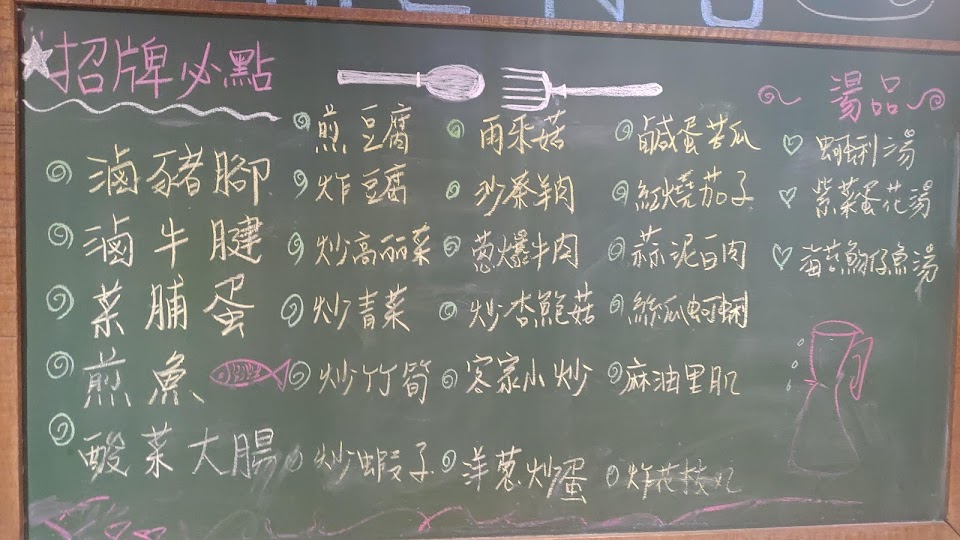 招牌必點
滷豬腳
滷牛腱
菜脯蛋
煎魚
酸菜大腸
煎豆腐
炸豆腐
炒高丽菜
炒青菜
炒竹筍
炒蝦子
雨來菇
沙茶羊肉
蔥爆牛肉
炒杏鮑菇
客家小炒
洋蔥炒蛋
鹹蛋苦瓜
紅燒茄子
蒜泥白肉
絲瓜蛤蜊
麻油里肌
炸花枝丸
湯品
蛤蜊湯
紫菜蛋花湯
海苔魩仔魚湯